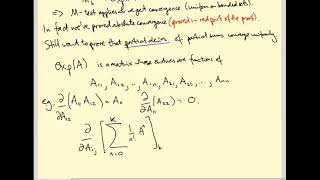 ⇒ M-test applies & we get convergence (uniform on bounded sets).
In fact we've proved absolute convergence (proved in red part of the proof).
Still want to prove that partial derivs. of partial sums converge uniformly
exp(A) is a matrix whose entries are functions of
A₁₁, A₁₂, ..., A₁ₙ, A₂₁, A₂₂, ..., Aₙₙ
eg. ∂/∂A₁₂ (A₁₁ A₁₂) = A₁₁ ∂/∂A₁₂ (A₂₂) = 0.
∂/∂Aᵢⱼ [ ∑ₙ₌₀ᴷ 1/n! Aⁿ ]